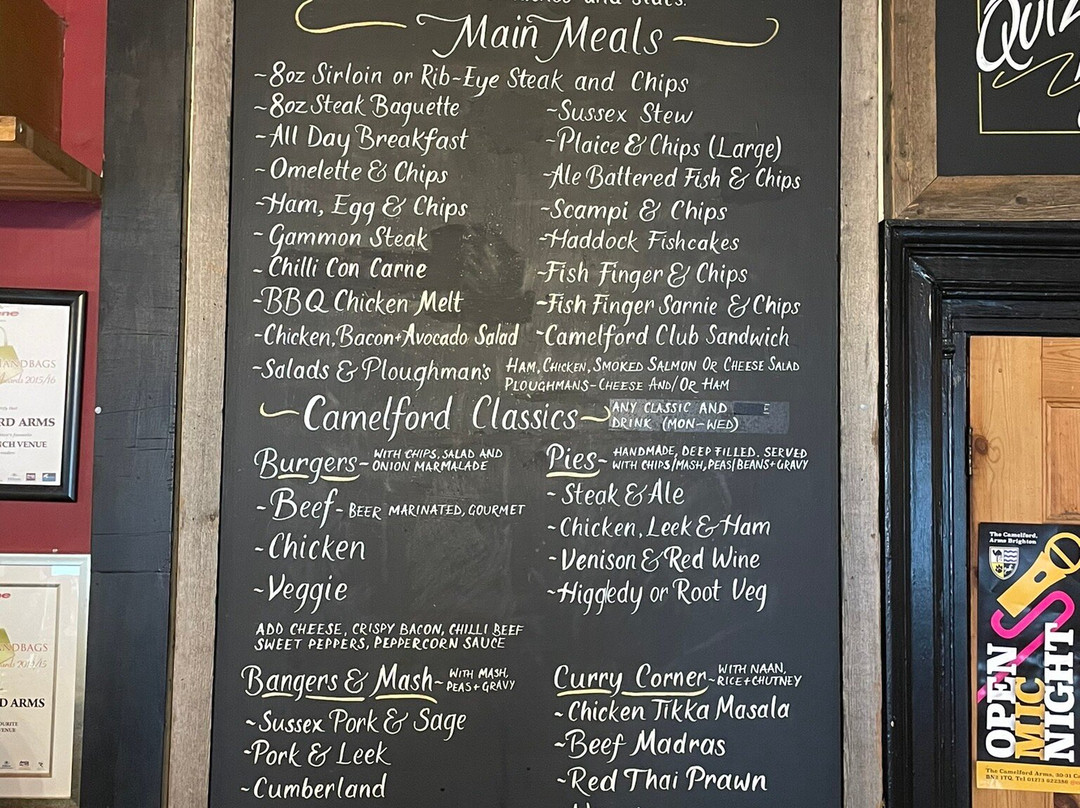 and
Main Meals
~8oz Sirloin or Rib-Eye Steak and Chips
~8oz Steak Baguette
~All Day Breakfast
~Omelette & Chips
~Ham, Egg & Chips
~Gammon Steak
~Chilli Con Carne
~BBQ Chicken Melt
~Chicken, Bacon + Avocado Salad
~Sussex Stew
~Plaice & Chips (Large)
~Ale Battered Fish & Chips
~Scampi & Chips
~Haddock Fishcakes
~Fish Finger & Chips
~Fish Finger Sarnie & Chips
~Camelford Club Sandwich
~Salads & Ploughman's
HAM, CHICKEN, SMOKED SALMON OR CHEESE SALAD
PLOUGHMANS- CHEESE AND/OR HAM
~Camelford Classics~
ANY CLASSIC AND
DRINK (MON-WED)
Burgers- WITH CHIPS, SALAD AND
ONION MARMALADE
-Beef- BEER MARINATED, GOURMET
-Chicken
-Veggie
ADD CHEESE, CRISPY BACON, CHILLI BEEF
SWEET PEPPERS, PEPPERCORN SAUCE
Pies- HANDMADE, DEEP FILLED. SERVED
WITH CHIPS/MASH, PEAS/BEANS + GRAVY
~Steak & Ale
~Chicken, Leek & Ham
~Venison & Red Wine
~Higgledy or Root Veg
Bangers & Mash~ WITH MASH,
PEAS + GRAVY
~Sussex Pork & Sage
~Pork & Leek
~Cumberland
Curry Corner~ WITH NAAN,
RICE + CHUTNEY
~Chicken Tikka Masala
~Beef Madras
~Red Thai Prawn
QUIZ
HANDBAGS
2015/16
RD ARMS
CH VENUE
NDBAGS
2015
D ARMS
The Camelford
Arms Brighton
OPEN
MIC
NIGHT
The Camelford Arms, 30-31